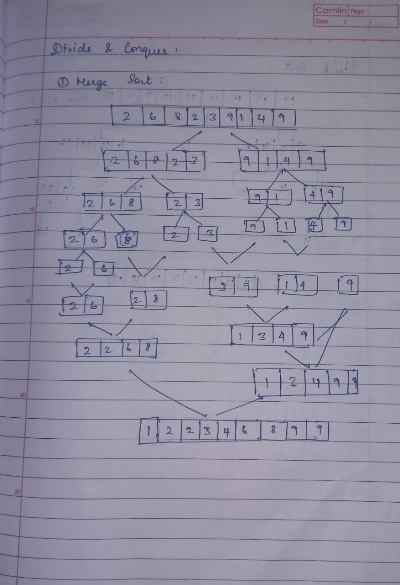 Camlin Page
Date / /
Divide & Conquer:
① Merge Sort:
2 6 8 2 3 9 1 4 9
2 6 8 2 3 9 1 4 9
2 6 8 2 3 9 1 4 9
2 6 8 2 3 9 1 4 9
2 6
2 6 2 8 3 9 1 4 9
2 2 6 8 1 3 4 9
1 3 4 9 9
1 2 2 3 4 6 8 9 9